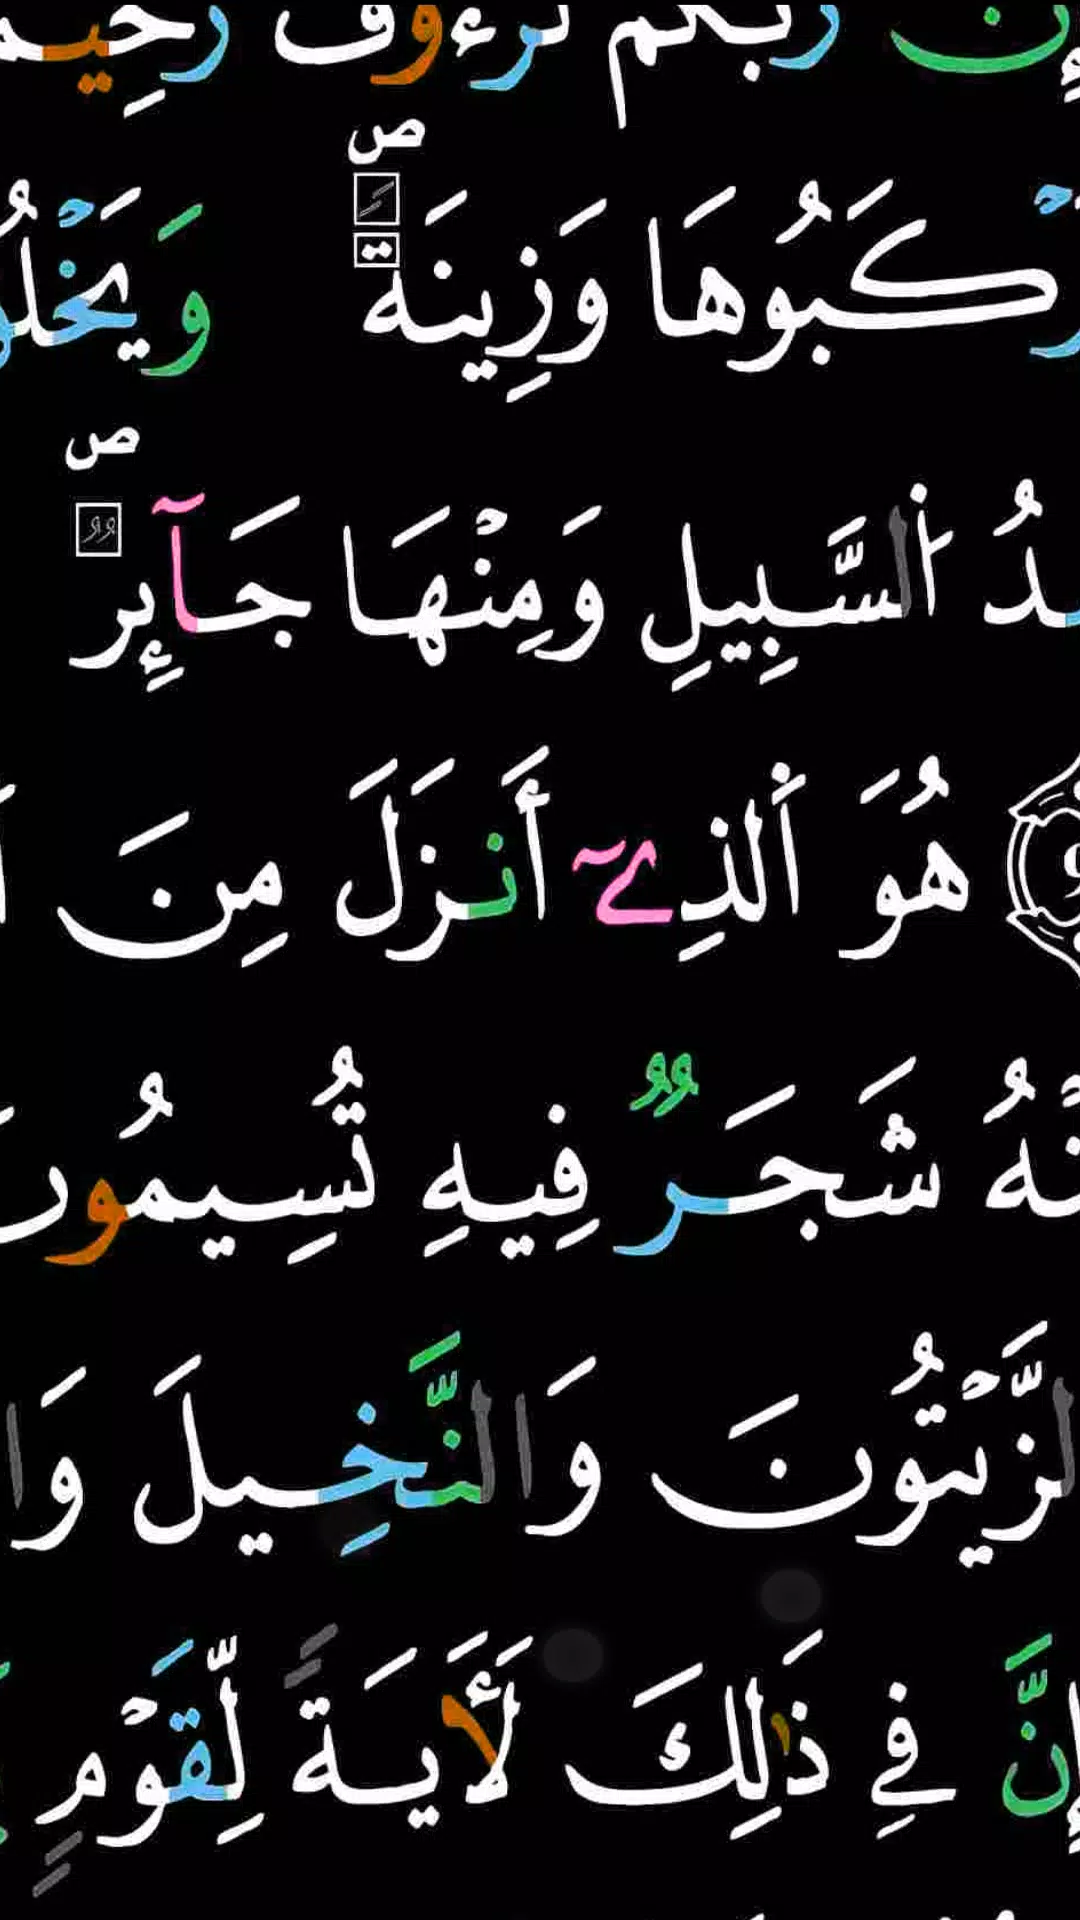 إِنَّ رَبَّكُمْ لَرَءُوفٌ رَحِيم
ص
كَبُوهَا وَزِينَةً وَيَخْلُ
ص
دُ اُ۬لسَّبِيلِ وَمِنْهَا جَآئِرٌ
هُوَ اَ۬لذِےٓ أَنزَلَ مِنَ
شَجَرٌ فِيهِ تُسِيمُو
لزَّيْتُونَ وَالنَّخِيلَ وَا
إِنَّ فِے ذَٰلِكَ لَأٓيَةً لِّقَوْمٍ